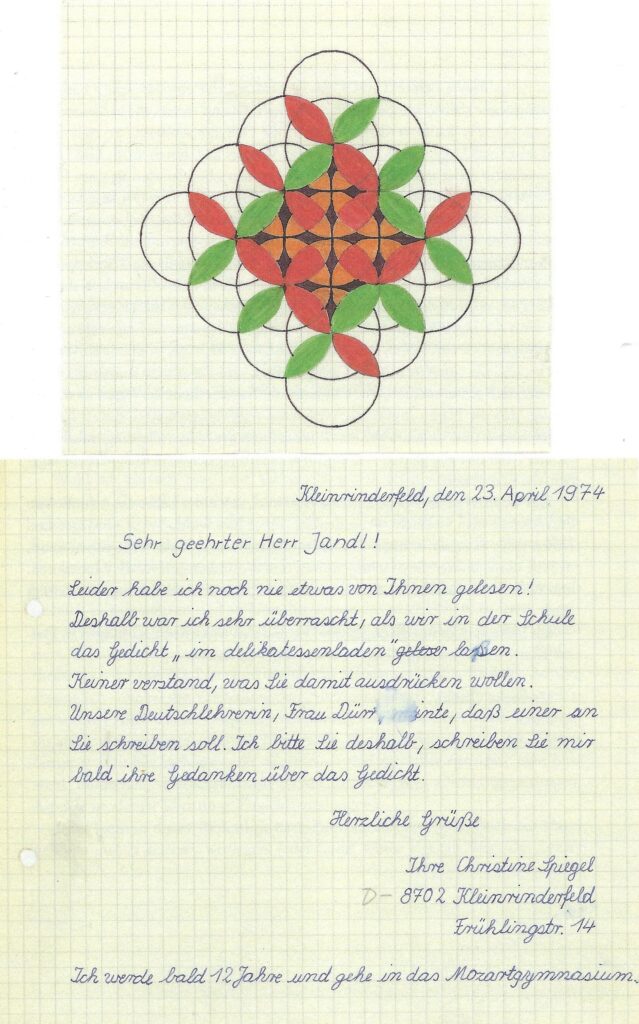 Kleinrinderfeld, den 23. April 1974
Sehr geehrter Herr Jandl!
Leider habe ich noch nie etwas von Ihnen gelesen!
Deshalb war ich sehr überrascht, als wir in der Schule
das Gedicht „im delikatessenladen" geleser laßen.
Keiner verstand, was Sie damit ausdrücken wollen.
Unsere Deutschlehrerin, Frau Dürr, meinte, daß einer an
Sie schreiben soll. Ich bitte Sie deshalb, schreiben Sie mir
bald ihre Gedanken über das Gedicht.
Herzliche Grüße
Ihre Christine Spiegel
D- 8702 Kleinrinderfeld
Frühlingstr. 14
Ich werde bald 12 Jahre und gehe in das Mozartgymnasium.